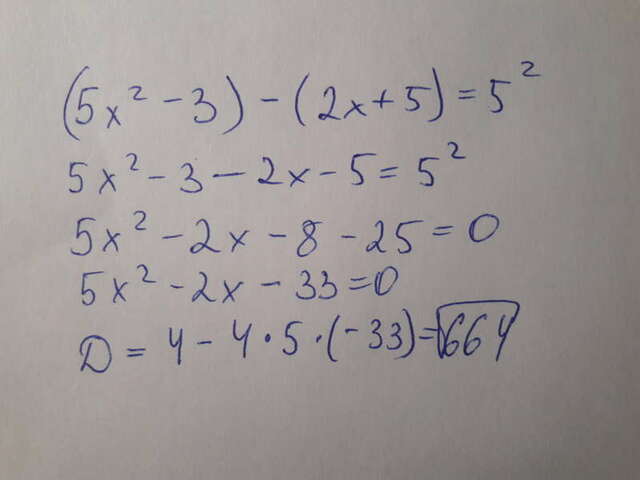 (5x² - 3) - (2x + 5) = 5²
5x² - 3 - 2x - 5 = 5²
5x² - 2x - 8 - 25 = 0
5x² - 2x - 33 = 0
D = 4 - 4 · 5 · (-33) = √664